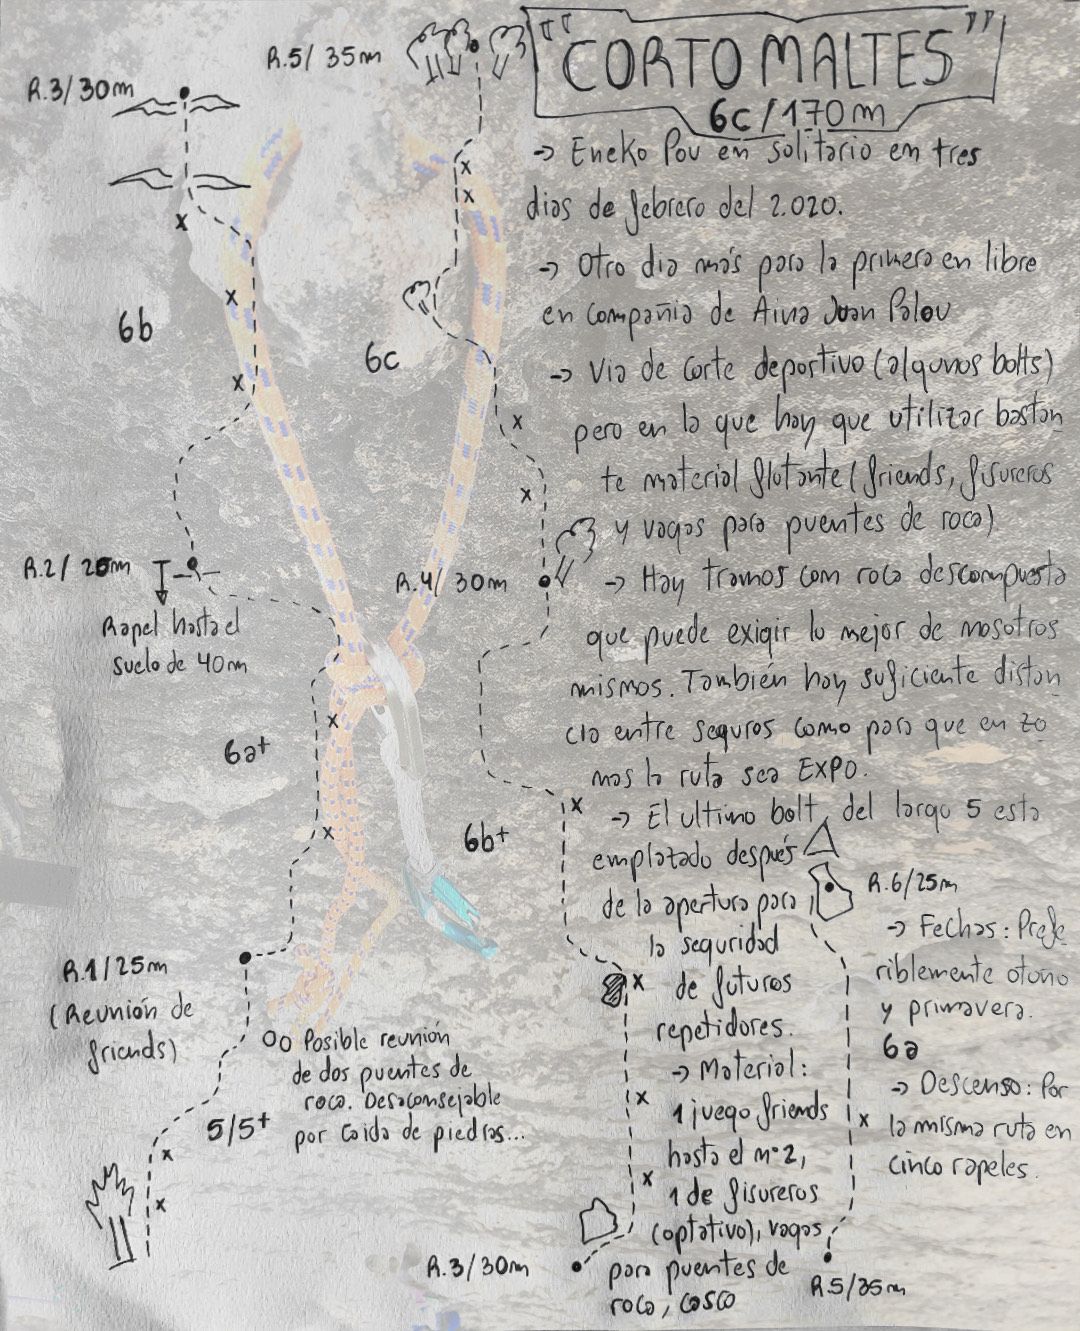 "CORTO MALTES"
6c/170m
→ Eneko Pou en solitario en tres
dias de febrero del 2.020.
→ Otro dia más para la primera en libre
en compañia de Aina Juan Palou
→ Via de corte deportivo (algunos bolts)
pero en la que hay que utilizar bastan
te material flotante (friends, fisureros
y vagas para puentes de roca)
→ Hay tramos con roca descompuesta
que puede exigir lo mejor de nosotros
mismos. También hay suficiente distan
cia entre seguros como para que en zo
nas la ruta sea EXPO.
→ El ultimo bolt, del largo 5 esta
emplazado después
de la apertura para
la seguridad
de futuros
repetidores.
→ Material:
1 juego friends
hasta el nº2,
1 de fisureros
(optativo), vagas
para puentes de
roca, casco
R.6/25m
→ Fechas: Prefe
riblemente otoño
y primavera.
6a
→ Descenso: Por
la misma ruta en
cinco rapeles.
R.5/35m
R.5/35m
R.3/30m
6b
6c
R.2/20m
Rapel hasta el
suelo de 40m
R.4/30m
6a+
6b+
R.1/25m
(Reunión de
friends)
Posible reunión
de dos puentes de
roca. Desaconsejable
por caida de piedras...
5/5+
R.3/30m